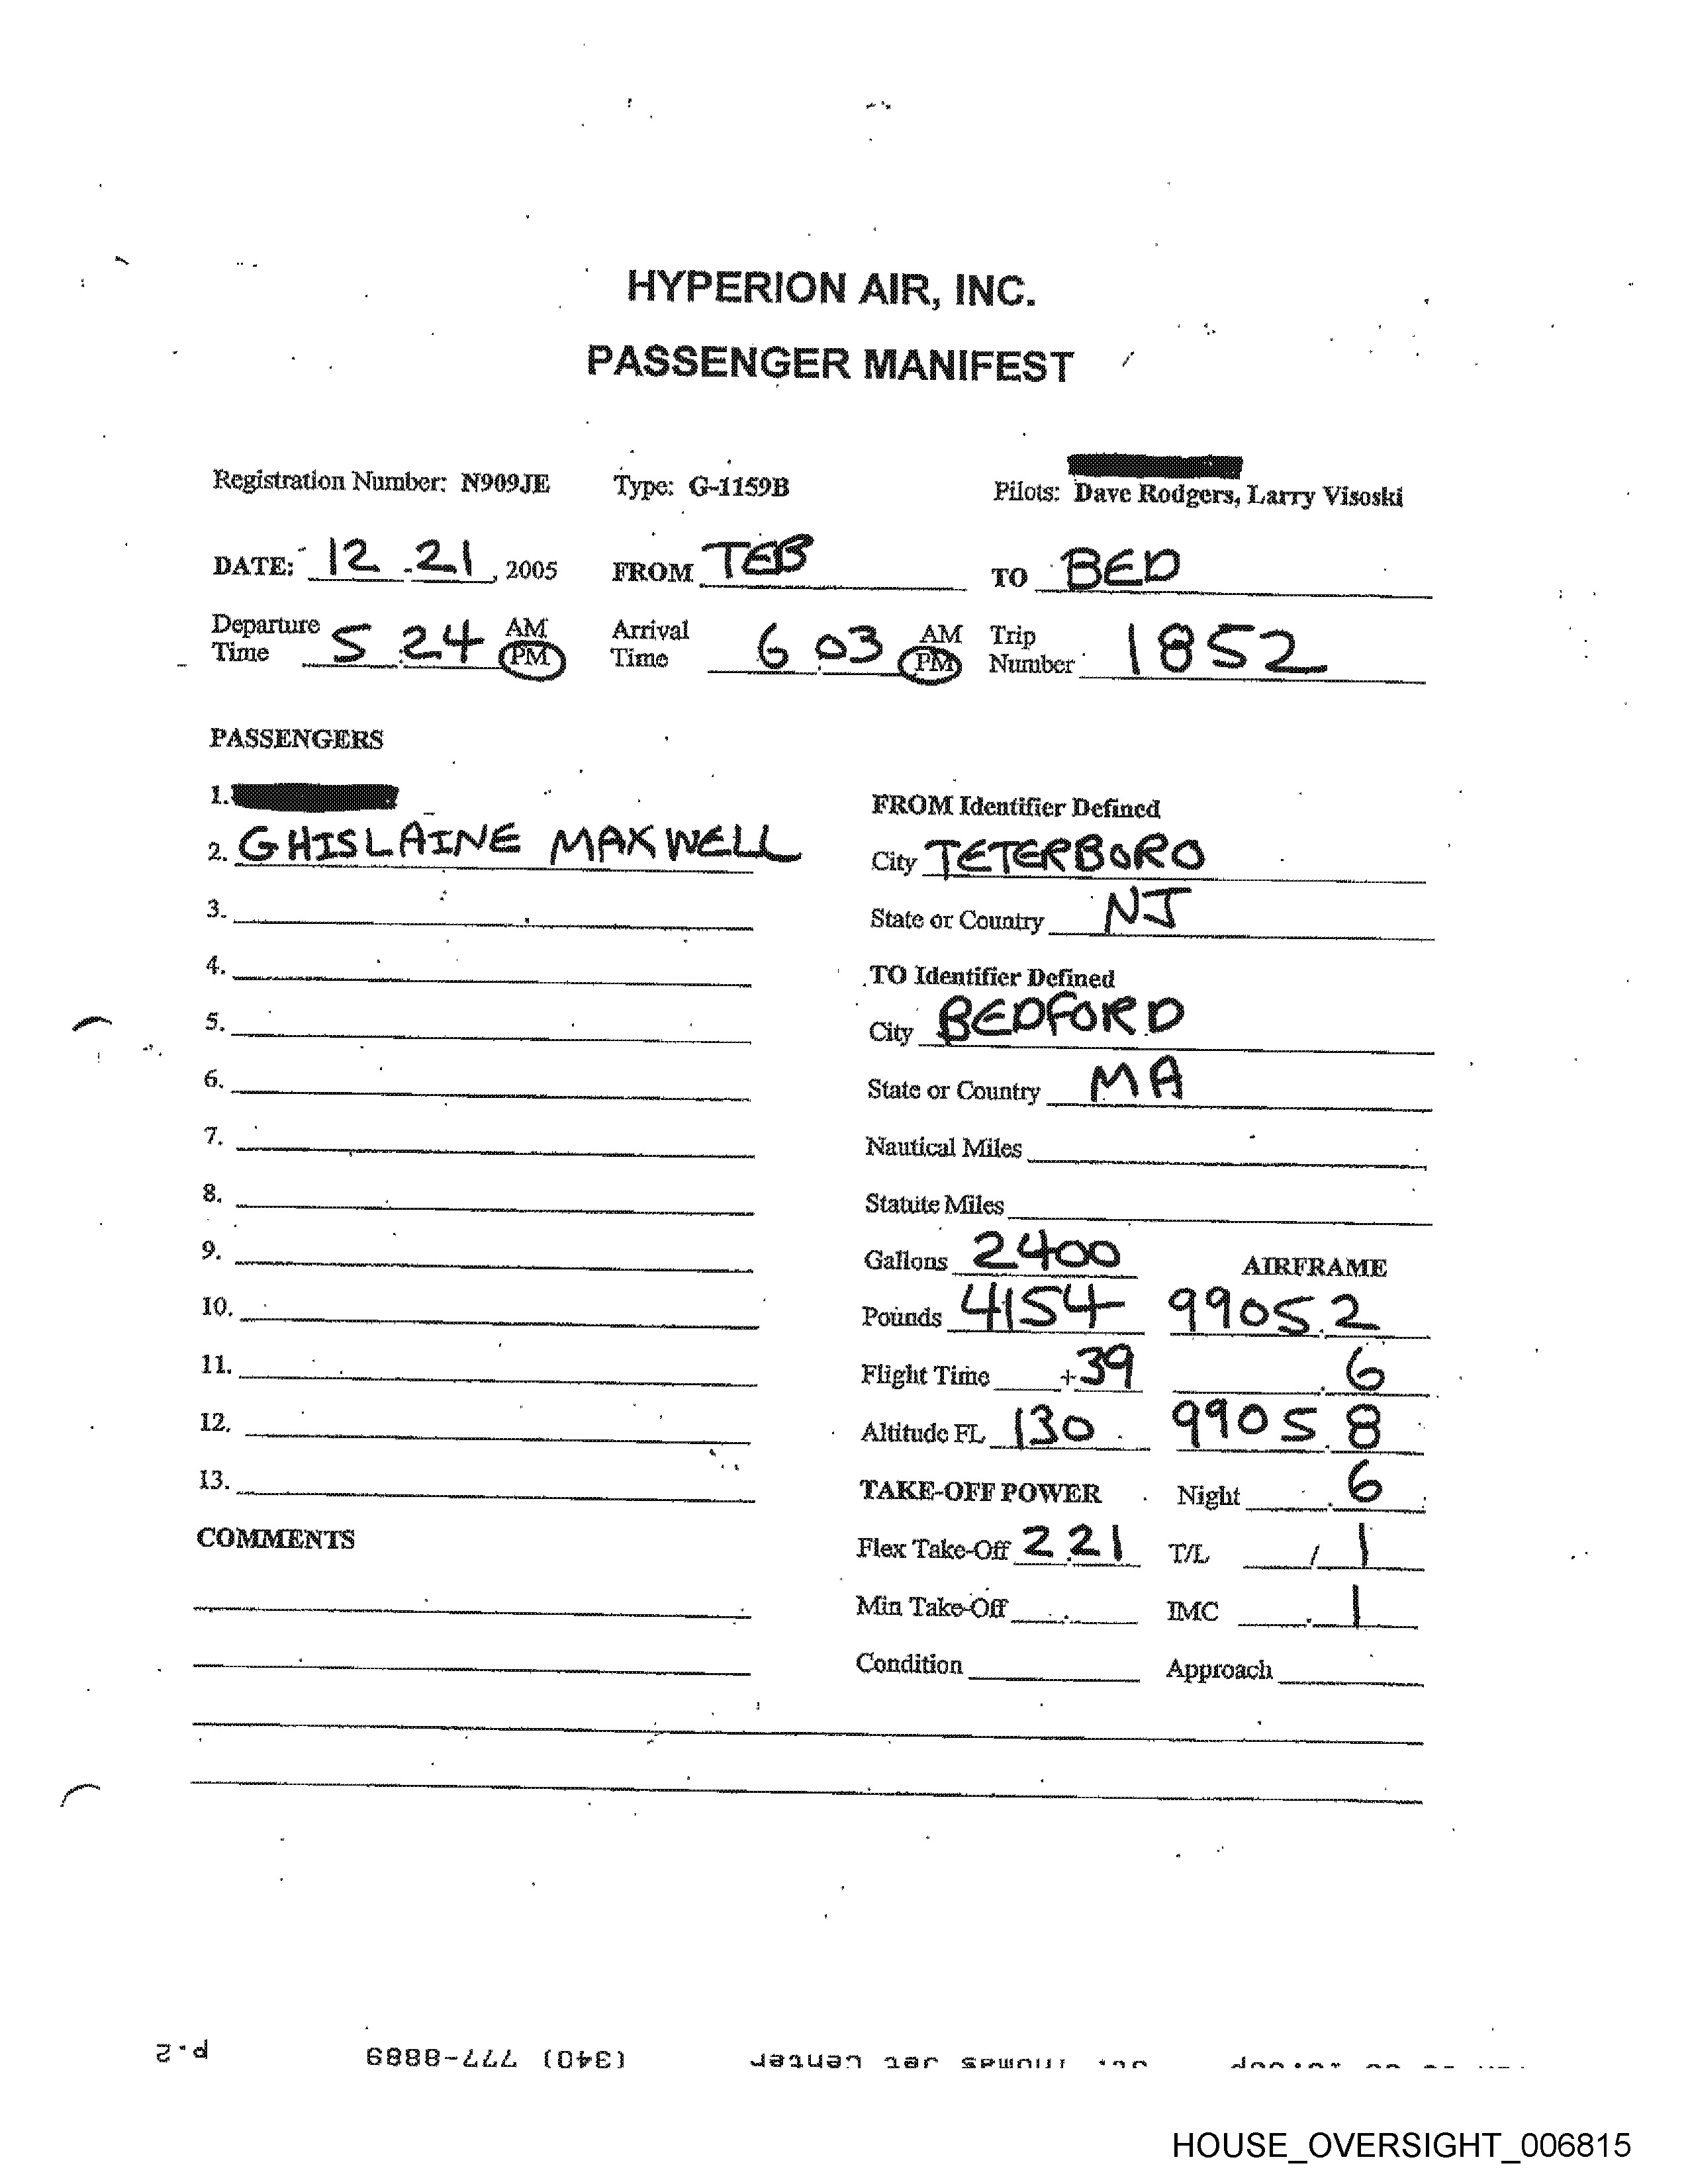 HYPERION AIR, INC.
PASSENGER MANIFEST
Registration Number: N909JE Type: G-1159B Pilots: Dave Rodgers, Larry Visoski
DATE: 12 . 21 , 2005 FROM TEB TO BED
Departure Time 5 : 24 AM PM Arrival Time 6 : 03 AM PM Trip Number 1852
PASSENGERS
1.
2. GHISLAINE MAXWELL
3.
4.
5.
6.
7.
8.
9.
10.
11.
12.
13.
COMMENTS
FROM Identifier Defined
City TETERBORO
State or Country NJ
TO Identifier Defined
City BEDFORD
State or Country MA
Nautical Miles
Statute Miles
Gallons 2400 AIRFRAME
Pounds 4154 9905.2
Flight Time +39 .6
Altitude FL 130 9905.8
TAKE-OFF POWER Night .6
Flex Take-Off 2.21 T/L / 1
Min Take-Off . IMC .1
Condition Approach
St. Thomas Jet Center (340) 777-8889 p.2
HOUSE_OVERSIGHT_006815